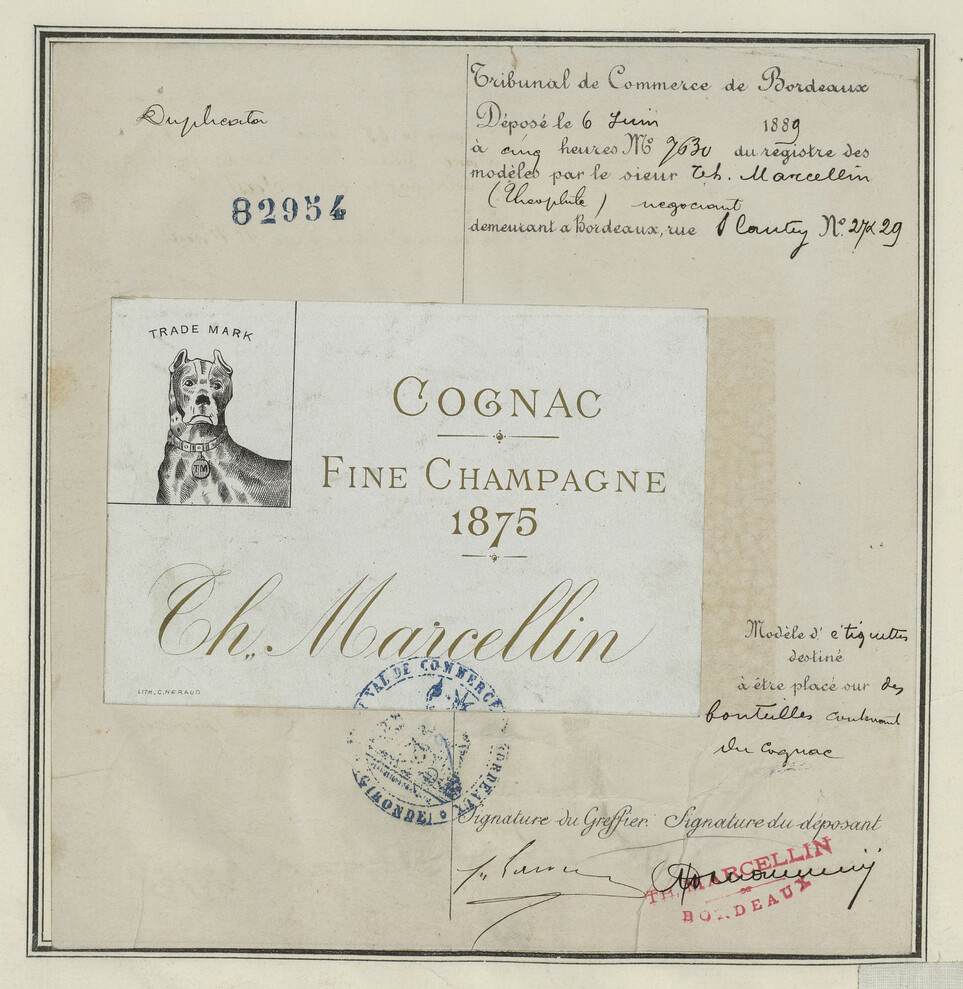 Duplicata
82954
Tribunal de Commerce de Bordeaux
Déposé le 6 Juin 1889
à cinq heures No 7630 du registre des
modèles par le sieur Th. Marcellin
(Théophile) négociant
demeurant à Bordeaux, rue No. 27 & 29
TRADE MARK
TM
COGNAC
FINE CHAMPAGNE
1875
Th. Marcellin
LITH. C. HERAUD
Modèle d'étiquettes
destiné
à être placé sur des
bouteilles contenant
du cognac
DE COMMERCE
BORDEAUX
(GIRONDE)
Signature du Greffier. Signature du déposant
TH. MARCELLIN
BORDEAUX